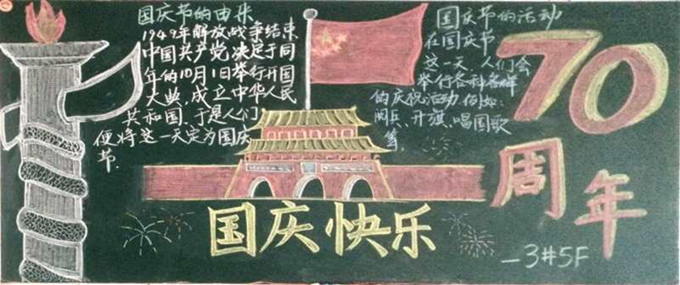 国庆节的由来
1949年解放战争结束
中国共产党决定于同
年的10月1日举行开国
大典,成立中华人民
共和国,于是人们
便将这一天定为国庆
节.
国庆节的活动
在国庆节
这一天,人们会
举行各种各样
的庆祝活动,例如:
阅兵、升旗、唱国歌
等
70
周年
国庆快乐
—3#5F